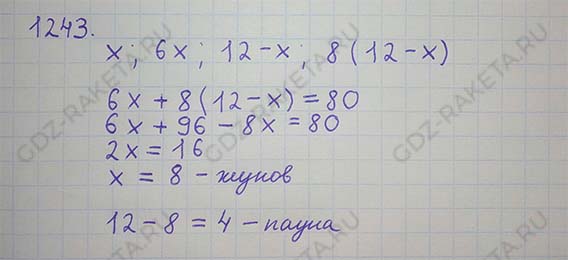 1243.
x; 6x; 12-x; 8(12-x)
6x+8(12-x)=80
6x+96-8x=80
2x=16
x=8-жуков
12-8=4-паука
GDZ-RAKETA.RU
GDZ-RAKETA.RU
GDZ-RAKETA.RU
GDZ-RAKETA.RU